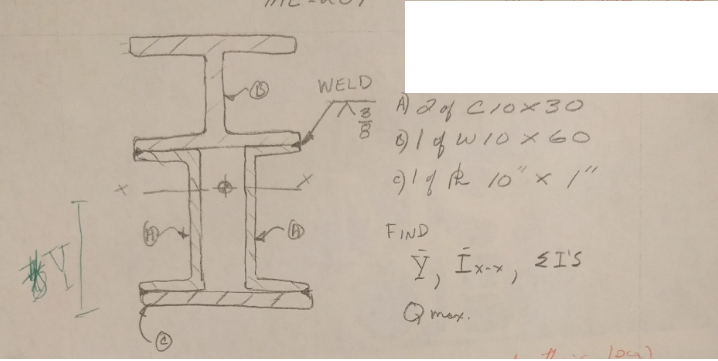 B
WELD
3
8
A) 2 of C10 x 30
B) 1 of W10 x 60
C) 1 of PL 10" x 1"
X
X
A
A
FIND
Ȳ, Īx-x, ΣI'S
Y
Q max.
C